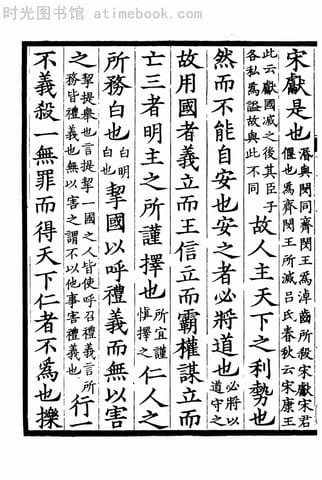 时光图书馆
— atimebook.com —
宋獻是也湣與閔同齊閔王爲淖齒所殺宋獻宋君偃也爲齊閔王所滅呂氏春秋云宋康王
此云獻國滅之後其臣子各私爲謚故與此不同故人主天下之利勢也
然而不能自安也安之者必將道也必將以道守之
故用國者義立而王信立而霸權謀立而
亡三者明主之所謹擇也所宜謹慎擇之仁人之
所務白也白明白也挈國以呼禮義而無以害
之挈提舉也言提挈一國之人皆使呼召禮義言所務皆禮義也無以害之謂不以他事害禮義也行一
不義殺一無罪而得天下仁者不爲也擽